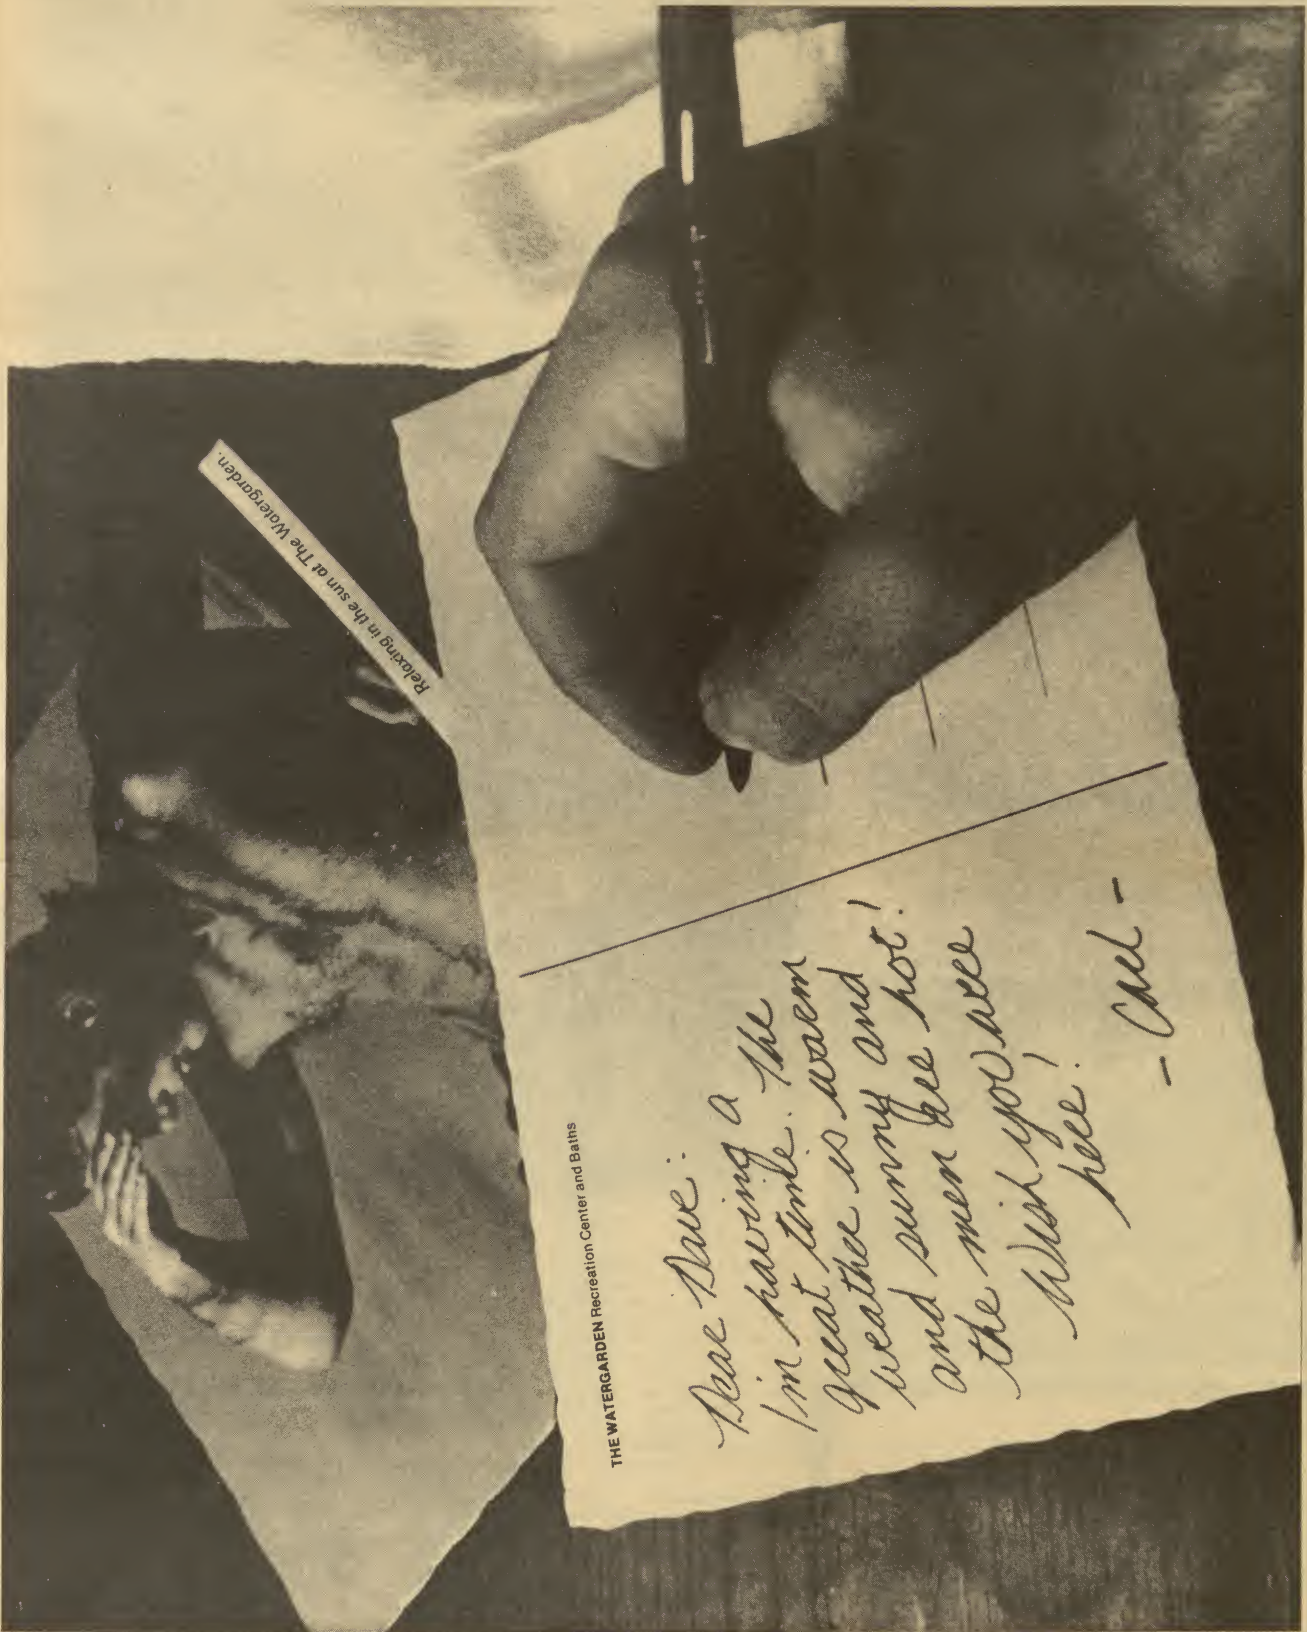 Relaxing in the sun at The Watergarden.
THE WATERGARDEN Recreation Center and Baths
Dear Dave:
I'm having a
great time. The
weather is warm
and sunny and
the men are hot!
Wish you were
here!
- Carl -